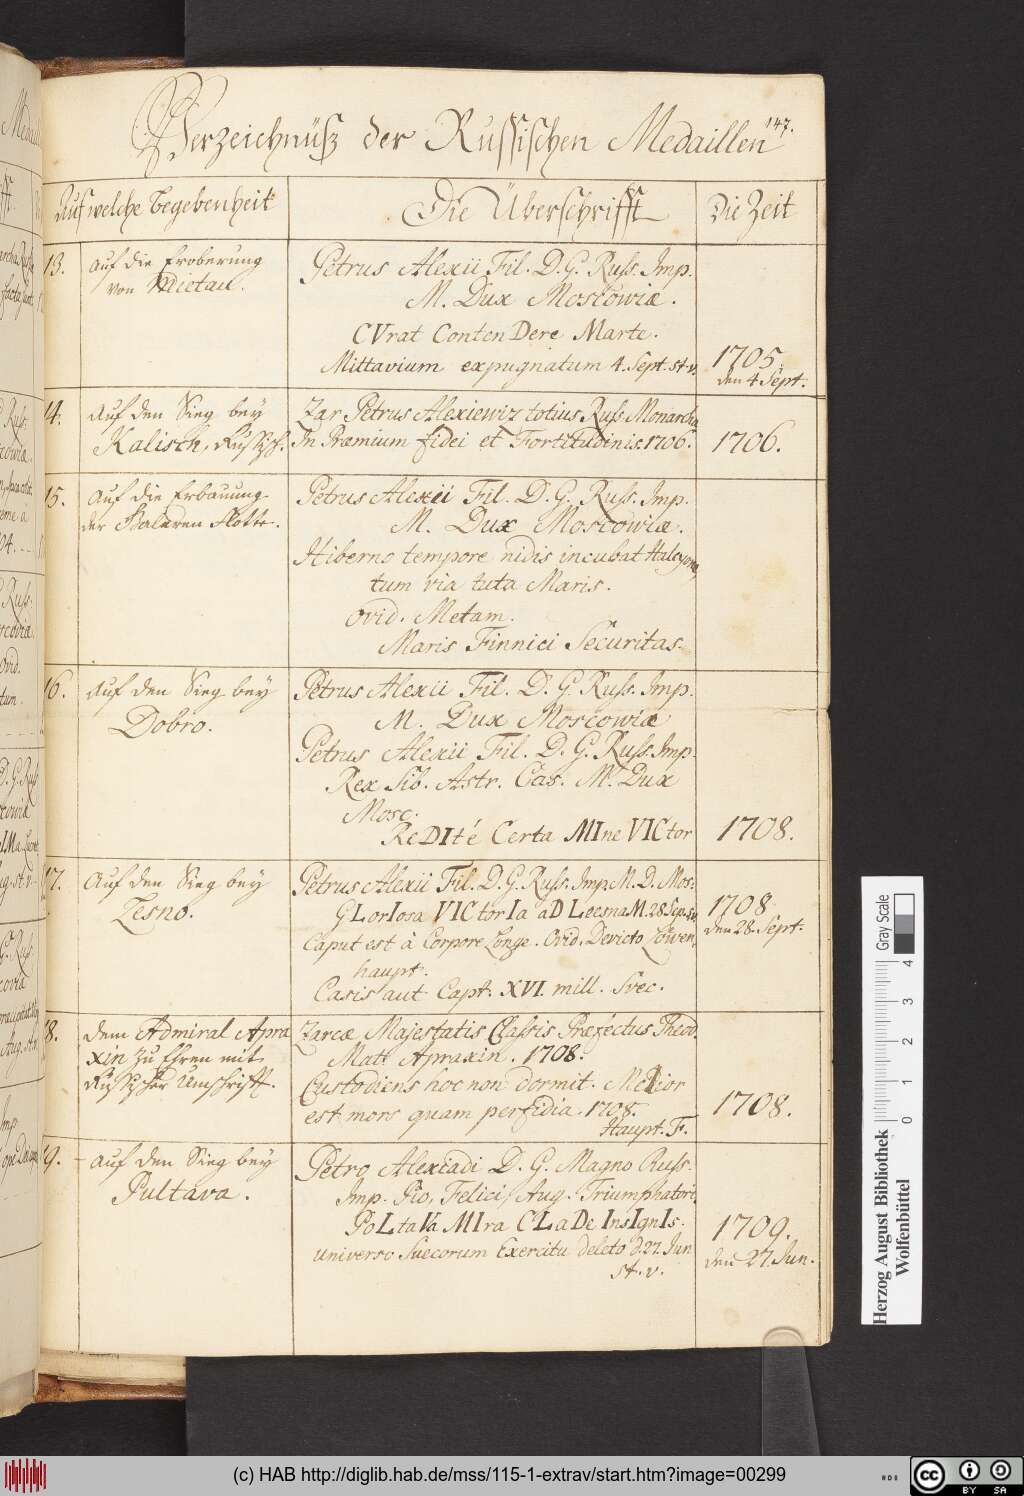 147.
Verzeichnüß der Russischen Medaillen
Auf welche Begebenheit
Die Überschrifft
Die Zeit
13.
Auf die Eroberung
von Mietau.
Petrus Alexii Fil. D. G. Russ. Imp.
M. Dux Moscowiæ.
CVrat ContenDere Marte.
Mittavium expugnatum 4. Sept. st. v.
1705.
den 4 Sept.
14.
Auf den Sieg bey
Kalisch, Russisch.
Zar Petrus Alexiewiz totius Russ. Monarcha
In Præmium fidei et Fortitudinis. 1706.
1706.
15.
Auf die Erbauung
der Flotte.
Petrus Alexii Fil. D. G. Russ. Imp.
M. Dux Moscowiæ.
Hiberno tempore nidis incubat Halcyone,
tum via tuta Maris.
Ovid. Metam.
Maris Finnici Securitas.
16.
Auf den Sieg bey
Dobro.
Petrus Alexii Fil. D. G. Russ. Imp.
M. Dux Moscowiæ
Petrus Alexii Fil. D. G. Russ. Imp.
Rex Sib. Astr. Cas. M. Dux
Mosc.
ReDIté Certa MIne VICtor
1708.
17.
Auf den Sieg bey
Lesno.
Petrus Alexii Fil. D. G. Russ. Imp. M. D. Mos:
GLorIosa VICtorIa aD LeesnaM. 28 Sep. st. v.
Caput est à Corpore Longe. Ovid. Devicto Löwen,
haupt.
Casis aut Capt. XVI. mill. Svec.
1708
den 28. Sept.
18.
Dem Admiral Apra
xin zu Ehren mit
Russischer Umschrifft.
Zareæ Majestatis Classis Præfectus Theod.
Matt Apraxin. 1708.
Custodiens hoc non dormit. Melior
est mors quam perfidia. 1708.
Haupt. F.
1708.
19.
Auf den Sieg bey
Pultava.
Petro Alexiadi D. G. Magno Russ.
Imp. Pio, Felici, Aug. Triumphatori.
PoLtaVa MIra CLaDe InsIgnIs.
universo Suecorum Exercitu deleto d. 27. Jun
st. v.
1709.
den 27. Jun.
Gray Scale
0 1 2 3 4
Herzog August Bibliothek
Wolfenbüttel
(c) HAB http://diglib.hab.de/mss/115-1-extrav/start.htm?image=00299
cc BY SA